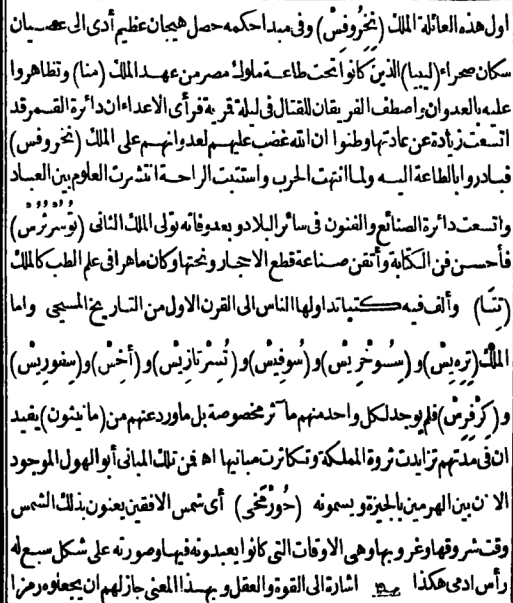 اول هذه العائلة الملك (نِخَرُوفِسْ) وفى مبدا حكمه حصل هيجان عظيم أدى الى عصيان
سكان صحراء (ليبيا) الذين كانوا تحت طاعة ملوك مصر من عهد الملك (منا) وتظاهروا
عليه بالعدوان واصطف الفريقان للقتال فى ليلة قمرية فرأى الاعداء ان دائرة القمر قد
اتسعت زيادة عن عادتها وظنوا ان الله غضب عليهم لعدوانهم على الملك (نخروفس)
فبادروا بالطاعة اليه ولما انتهت الحرب واستتبت الراحة انتشرت العلوم بين العباد
واتسعت دائرة الصنائع والفنون فى سائر البلاد وبعد وفاته تولى الملك الثانى (تُوسُرْتُرُسْ)
فأحسن فن الكتابة وأتقن صناعة قطع الاحجار ونحتها وكان ماهرا فى علم الطب كالملك
(تِتَا) وألف فيه كتبا تداولها الناس الى القرن الاول من التاريخ المسيحى واما
الملك (تِرِيسْ) و (سِسُوخْرِيسْ) و (سُوفِيسْ) و (تُسِرْتَازِيسْ) و (أَخِسْ) و (سِفُورِيسْ)
و (كَرْفِرِسْ) فلم يوجد لكل واحد منهم مآثر مخصوصة بل ما ورد عنهم من (مانيثون) يفيد
ان فى مدتهم تزايدت ثروة المملكة وتكاثرت مبانيها اه فمن تلك المبانى أبو الهول الموجود
الآن بين الهرمين بالجيزة ويسمونه (حُورْمَخى) أى شمس الافقين يعنون بذلك الشمس
وقت شروقها وغروبها وهى الاوقات التى كانوا يعبدونه فيها وصورته على شكل سبع له
رأس ادمى هكذا اشارة الى القوة والعقل وبهذا المعنى جاز لهم ان يجعلوه رمزا